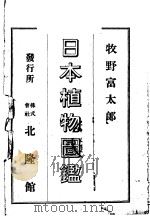 牧野富太郎
日本植物圖鑑
發行所 株式會社 北隆館